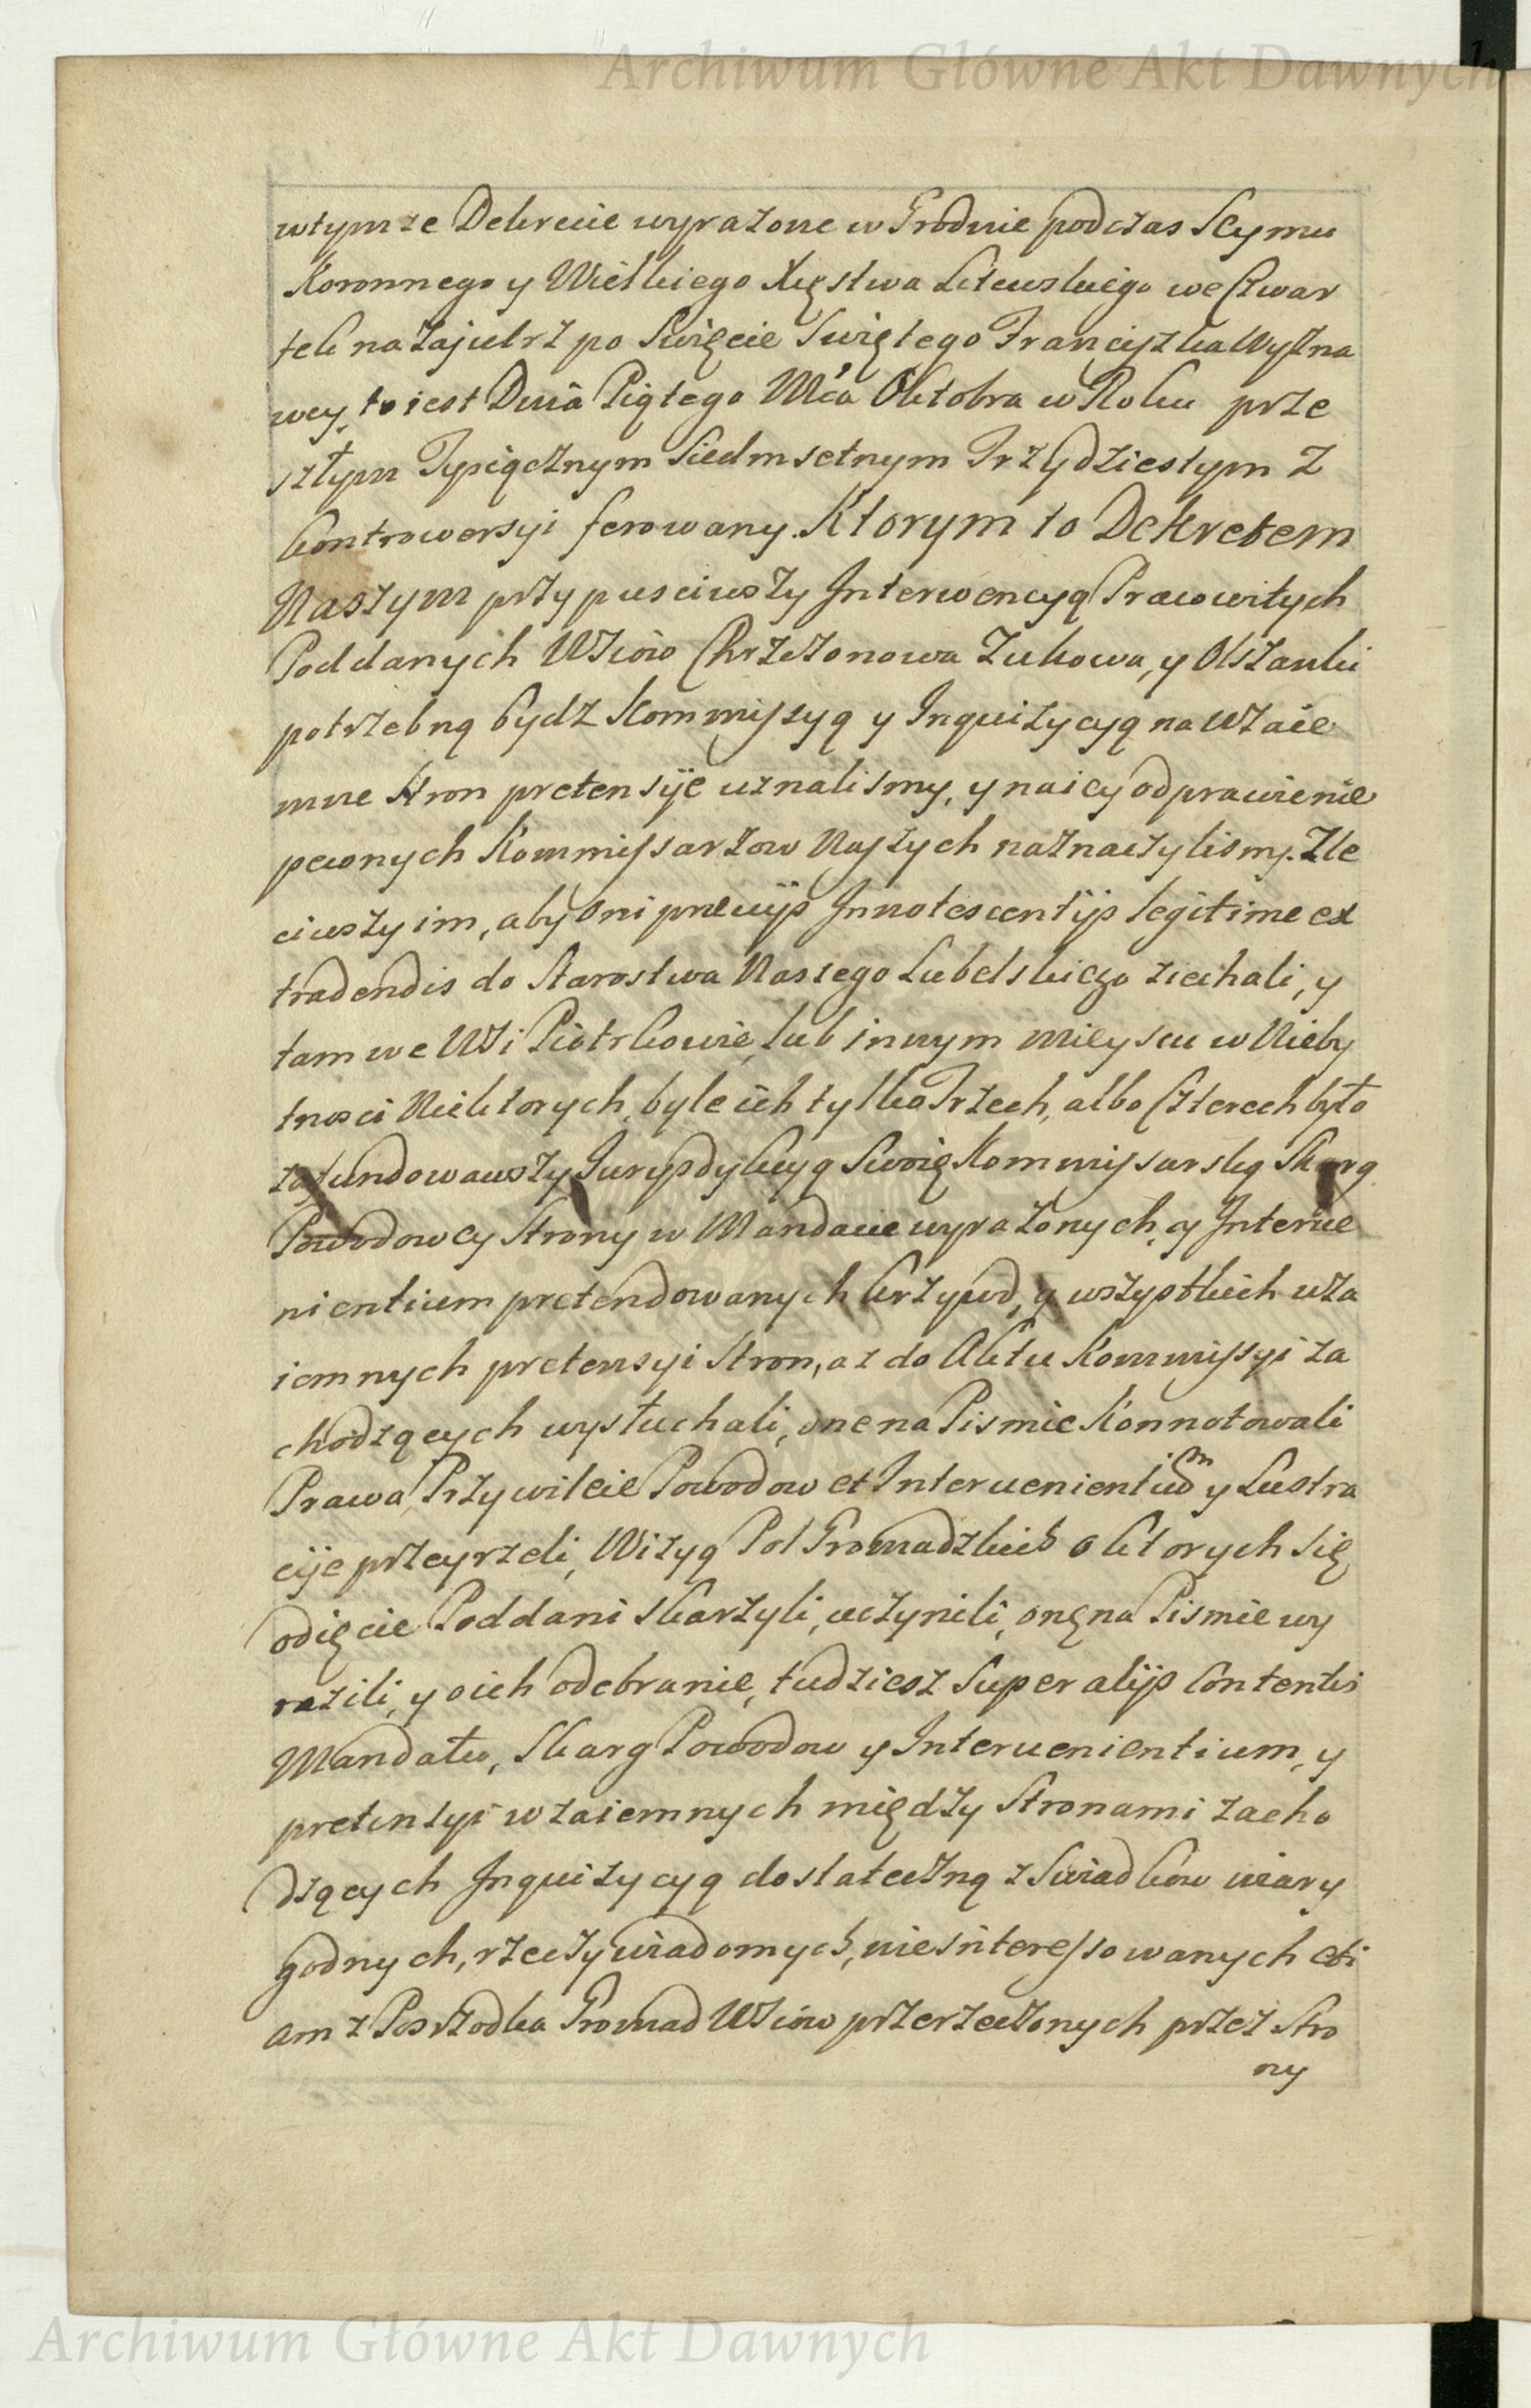 Archiwum Główne Akt Dawnych
wtymze Dekrecie wyrazone w Grodnie podczas Seymu
Koronnego y Wielkiego Xięstwa Litewskiego we Czwar
tek nazajutrz po Swięcie Swiętego Franciszka Wyzna
wcy, to iest Dnia Piątego Mca Oktobra w Roku prze
szłym Tysiącznym Siedmsetnym Trzydziestym z
kontrowersyi ferowany. Ktorym to Dekretem
Naszym przypusciwszy Interwencyą Pracowitych
Poddanych Wsiow Chrzczonowa Zukowa, y Olszanki
potrzebną bydz Kommissyą y Inquizycyą na wzaie
mne Stron pretensye uznalismy, y na iey odprawienie
pewnych Kommissarzow Naszych naznaczylismy. Zle
ciwszy im, aby oni prævijs Innotescentijs legitime ex
tradendis do Starostwa Naszego Lubelskiego ziechali, y
tam we Wsi Piotrkowie, lub innym mieyscu w Nieby
tnosci Niektorych, byle ich tylko Trzech, albo Czterech było
zafundowawszy Jurysdykcyą Swoię Kommissarską Skarg
Powodowey Strony w Mandacie wyrazonych, y Interve
nientium pretendowanych krzywd, y wszystkich wza
iemnych pretensyi Stron, az do Aktu Kommissyi za
chodzących wysłuchali, one na Pismie Konnotowali
Prawa, Przywileie Powodow et Intervenientium y Lustra
cije przeyrzeli, Wizyą Pol Gromadzkich o ktorych się
odięcie Poddani skarzyli, uczynili, onę na Pismie wy
razili, y o ich odebranie, tudziesz Super alijs Contentis
Mandatu, Skarg Powodow y Intervenientium, y
pretensyi wzaiemnych między Stronami zacho
dzących Inquizycyą dostateczną z Swiadkow wiary
godnych, rzeczy wiadomych, nieinteressowanych eti
am z Posrzodka Gromad Wsiow przerzeczonych przez Stro
ny
Archiwum Główne Akt Dawnych